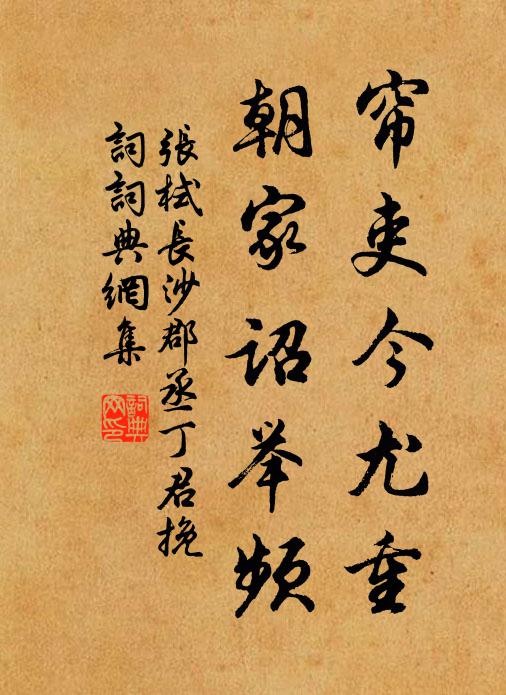 帘吏今尤重
朝家詔举频
張栻長沙郡丞丁君挽
詞詞典網集
詞典
网印